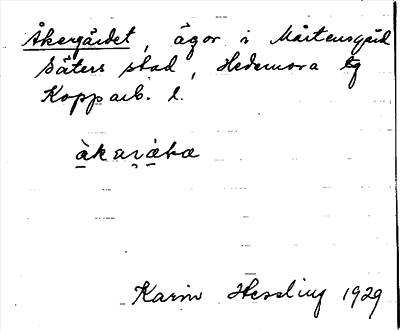 Åkergärdet, ägor i Mårtensgård
Säters stad, Hedemora tg
Kopparb. l.
àkaɲ̀ǝ̀tæ
Karin Hessling 1929